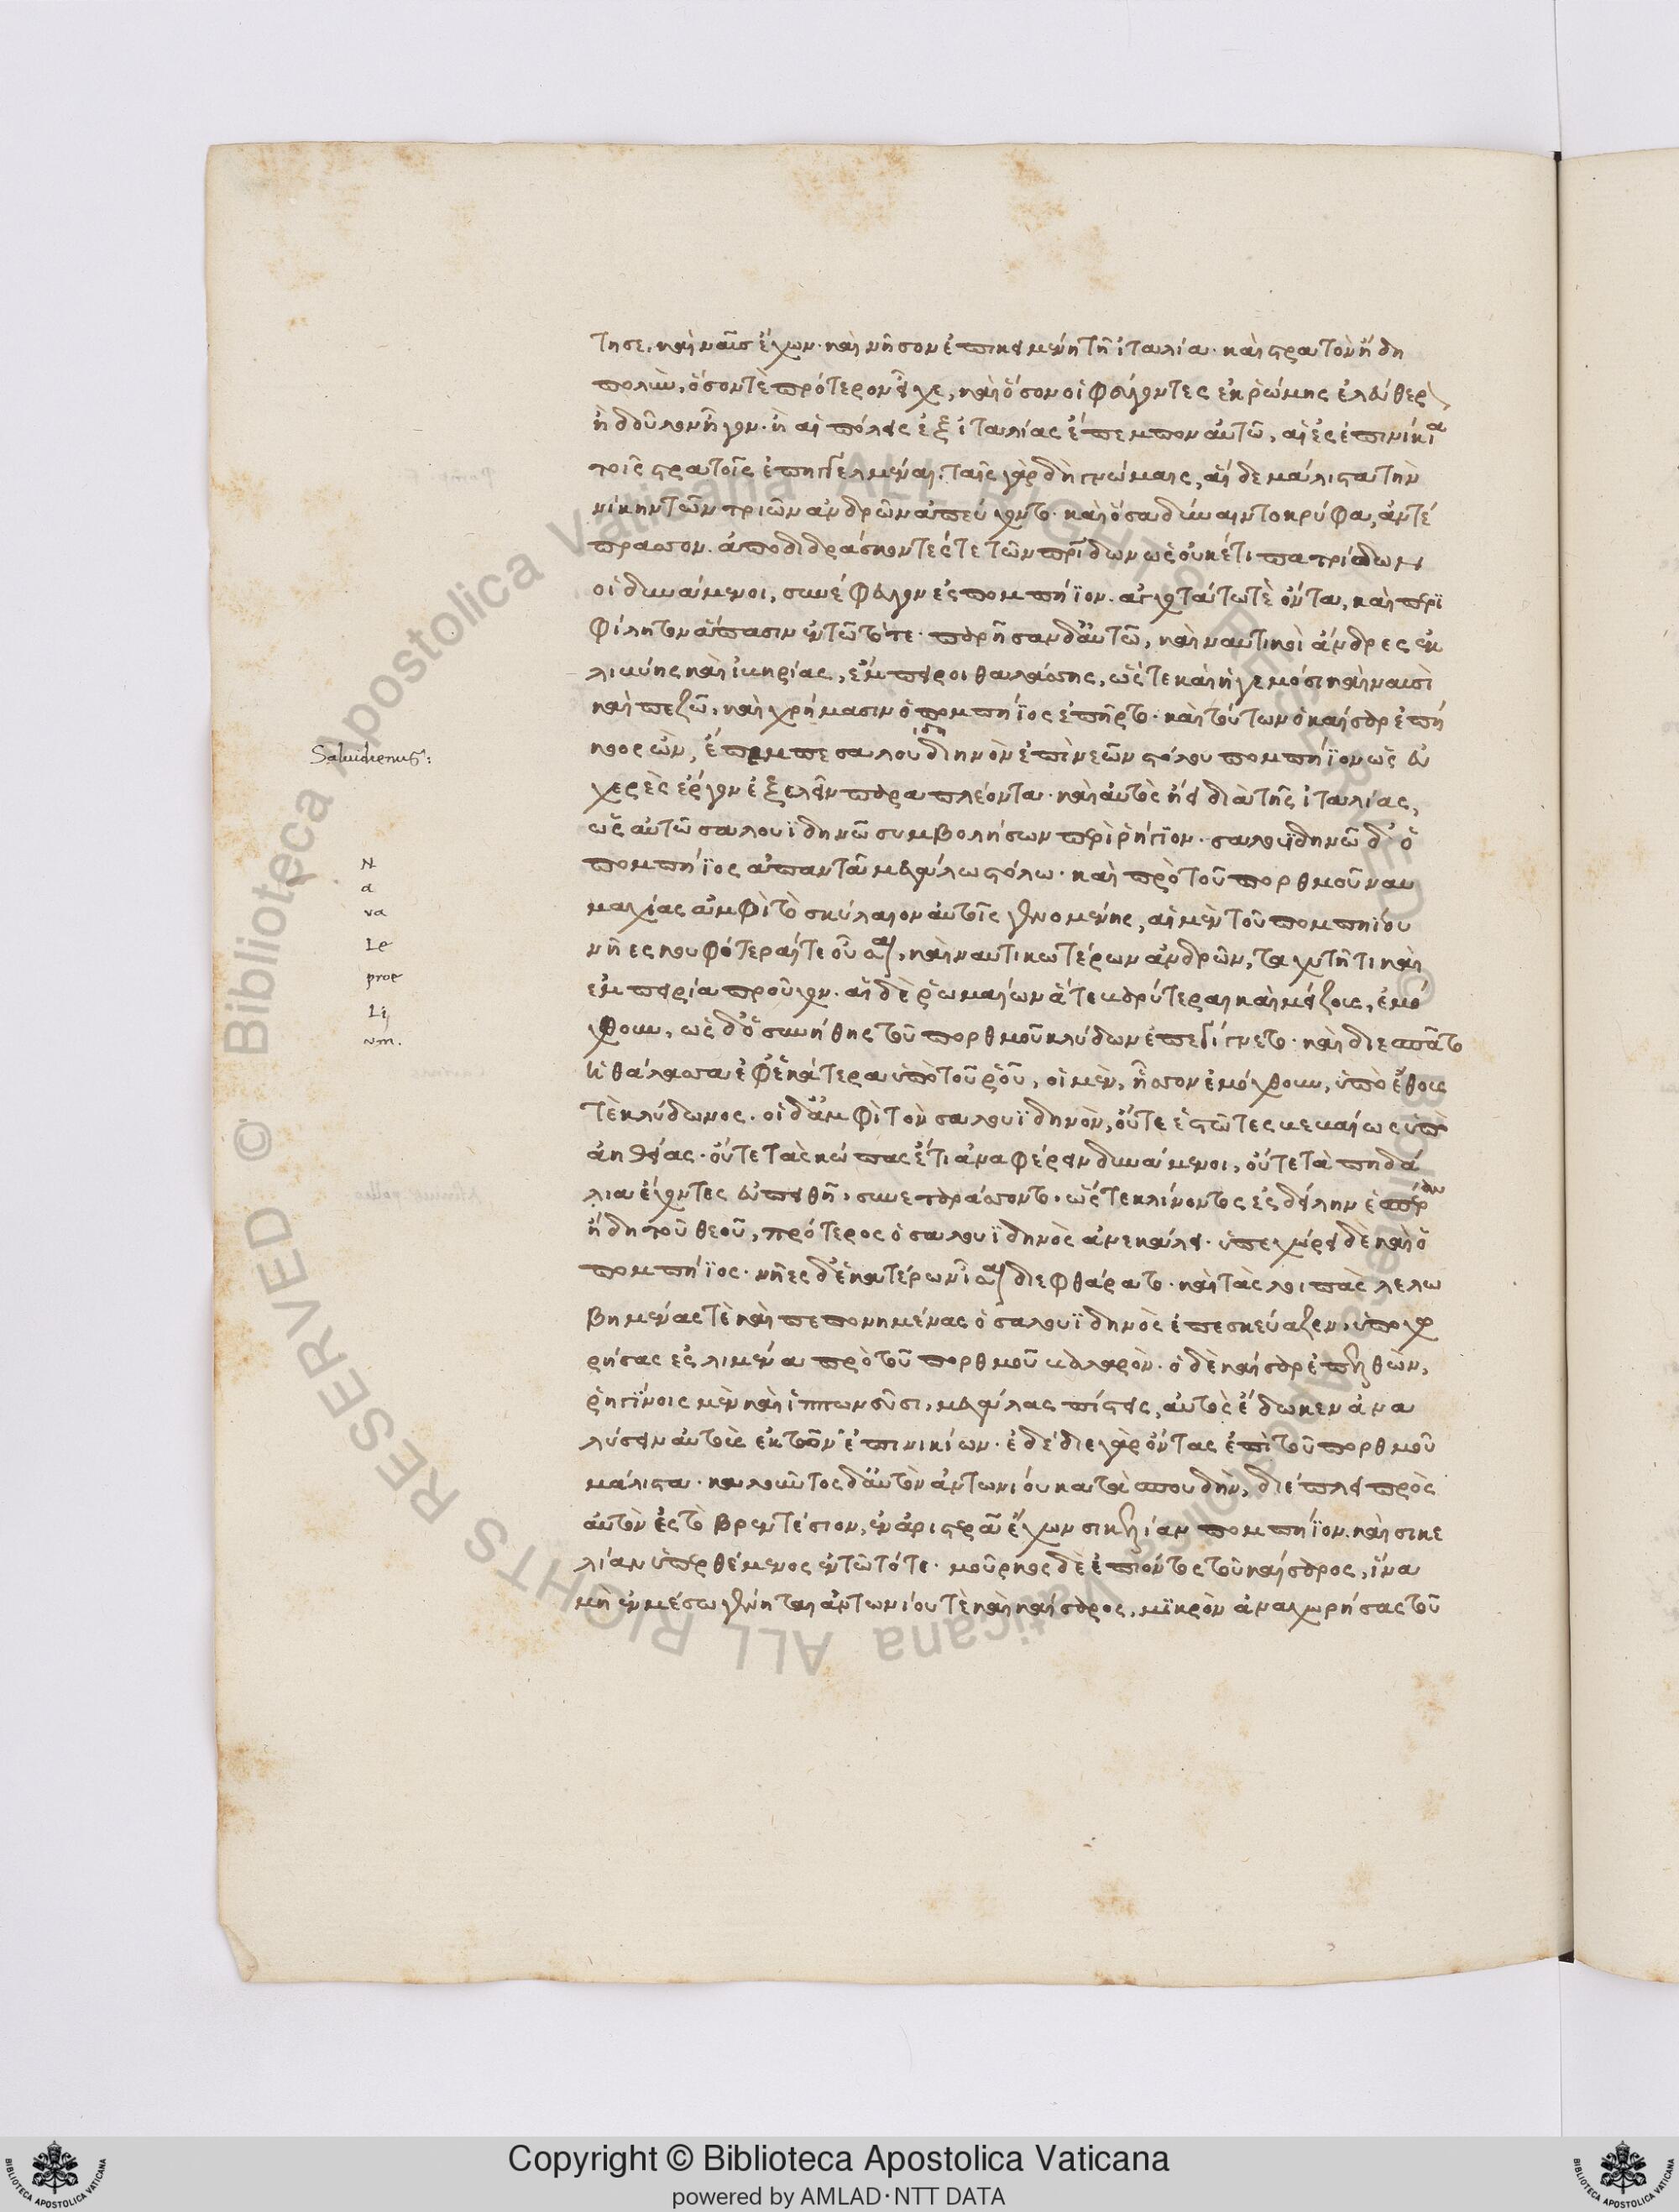 τησε. καὶ ναῦς ἔχων. καὶ νῆσον ἐπικειμένη τῆ ἰταλία. καὶ στρατὸν ἤδη
πολὺν, ὅσον τὲ πρότερον εἶχε, καὶ ὅσον οἱ φεύγοντες ἐκ ῥώμης ἐλεύθερ
ἢ δοῦλον ἦγον. ἢ αἱ πόλεις ἐξ ἰταλίας ἔπεμπον αὐτῶ, αἱ ἐς ἐπινίκια
τοῖς στρατοῖς ἐπηγγελμέναι. ταῖς γὰρ δὴ γνώμαις, αἵδε μάλιστα τὴν
νίκην τῶν τριῶν ἀνδρῶν ἀπεύχοντο. καὶ ὅσα δύναιντο κρύφα, ἀντέ
πρασσον. ἀποδιδράσκοντές τε τῶν πρίδων ὡς οὐκέτι πατρίδων
οἱ δυνάμενοι, συνέφευγον ἐς πομπήϊον. ἀγχοτάτω τὲ ὄντα, καὶ περι
φίλητον ἅπασιν ἐν τῶ τότε. παρῆσαν δ' αὐτῶ, καὶ ναυτικοὶ ἄνδρες ἐκ
λιβύης καὶ ἰβηρίας, ἔμπειροι θαλάσσης, ὥστε καὶ ἡγεμόσι καὶ ναυσὶ
καὶ πεζῶ, καὶ χρήμασιν ὁ πομπήϊος ἐπῆρτο. καὶ τούτων ὁ καῖσαρ ἐπή
κοος ὢν, ἔπεμπε σαλουιδιηνὸν ἐπὶ νεῶν στόλου πομπήϊον ὡς εὐ
χερὲς ἔργον ἐξελεῖν παραπλέοντα. καὶ αὐτὸς ἤει διὰ τῆς ἰταλίας,
ὡς αὐτῶ σαλουϊδηνῶ συμβολήσων περὶ ῥήγιον. σαλουϊδηνῶ δ' ὁ
πομπήϊος ἀπαντᾶ μεγάλω στόλω. καὶ πρὸ τοῦ πορθμοῦ ναυ
μαχίας ἀμφὶ τὸ σκύλαιον αὐτοῖς γενομένης, αἱ μὲν τοῦ πομπηίου
νῆες κουφότεραί τε οὖσαι, καὶ ναυτικωτέρων ἀνδρῶν, ταχυτῆτι καὶ
ἐμπειρία προῦχον. αἱ δὲ ῥωμαίων ἅτε βαρύτεραι καὶ μείζους, ἐμό
χθουν, ὡς δ' ὁ συνήθης τοῦ πορθμοῦ κλύδων ἐπεγίγνετο. καὶ διεσπᾶτο
ἡ θάλασσα ἐφ' ἑκάτερα ὑπὸ τοῦ ῥοῦ, οἱ μὲν, ἧσσον ἐμόχθουν, ὑπὸ ἔθους
τὲ κλύδωνος. οἱ δ' ἀμφὶ τὸν σαλουϊδηνὸν, οὔτε ἑστῶτες βεβαίως ὑπὸ
ἀηθείας. οὔτε τὰς κώπας ἔτι ἀναφέρειν δυνάμενοι, οὔτε τὰ πηδά
λια ἔχοντες εὐπειθῆ. συνεταράσσοντο. ὥστε κλίνοντος ἐς δείλην ἑσπέραν
ἤδη τοῦ θεοῦ, πρότερος ὁ σαλουϊδηνὸς ἀνεκάλει. ὑπεχώρει δὲ καὶ ὁ
πομπήϊος. νῆες δ' ἑκατέρων ἴσαι διεφθάρατο. καὶ τὰς λοιπὰς λελω
βημένας τὲ καὶ πεπονημένας ὁ σαλουϊδηνὸς ἐπεσκεύαζεν, ὑποχω
ρήσας ἐς λιμένα πρὸ τοῦ πορθμοῦ βαλαρὸν. ὁ δὲ καῖσαρ ἐπελθὼν,
ῥηγίνοις μὲν καὶ ἱππωνεῦσι, μεγάλας πίστεις, αὐτὸς ἔδωκεν ἀνα
λύσειν αὐτοὺς ἐκ τῶν ἐπινικίων. ἐδέδιε γὰρ ὄντας ἐπὶ τοῦ πορθμοῦ
μάλιστα. καλοῦντος δ' αὐτὸν ἀντωνίου κατὰ σπουδὴν, διέπλει πρὸς
αὐτὸν ἐς τὸ βρεντέσιον, ἐν ἀριστερᾶ ἔχων σικελίαν πομπήϊον. καὶ σικε
λίαν ὑπερθέμενος ἐν τῶ τότε. μοῦρκος δὲ ἐπιόντος τοῦ καίσαρος, ἵνα
μὴ ἐν μέσω γένηται ἀντωνίου τὲ καὶ καίσαρος, μϊκρὸν ἀναχωρήσας τοῦ
Saluidienus:
N
a
va
Le
proe
Lij
vm.
Copyright © Biblioteca Apostolica Vaticana
powered by AMLAD·NTT DATA
© Biblioteca Apostolica Vaticana ALL RIGHTS RESERVED